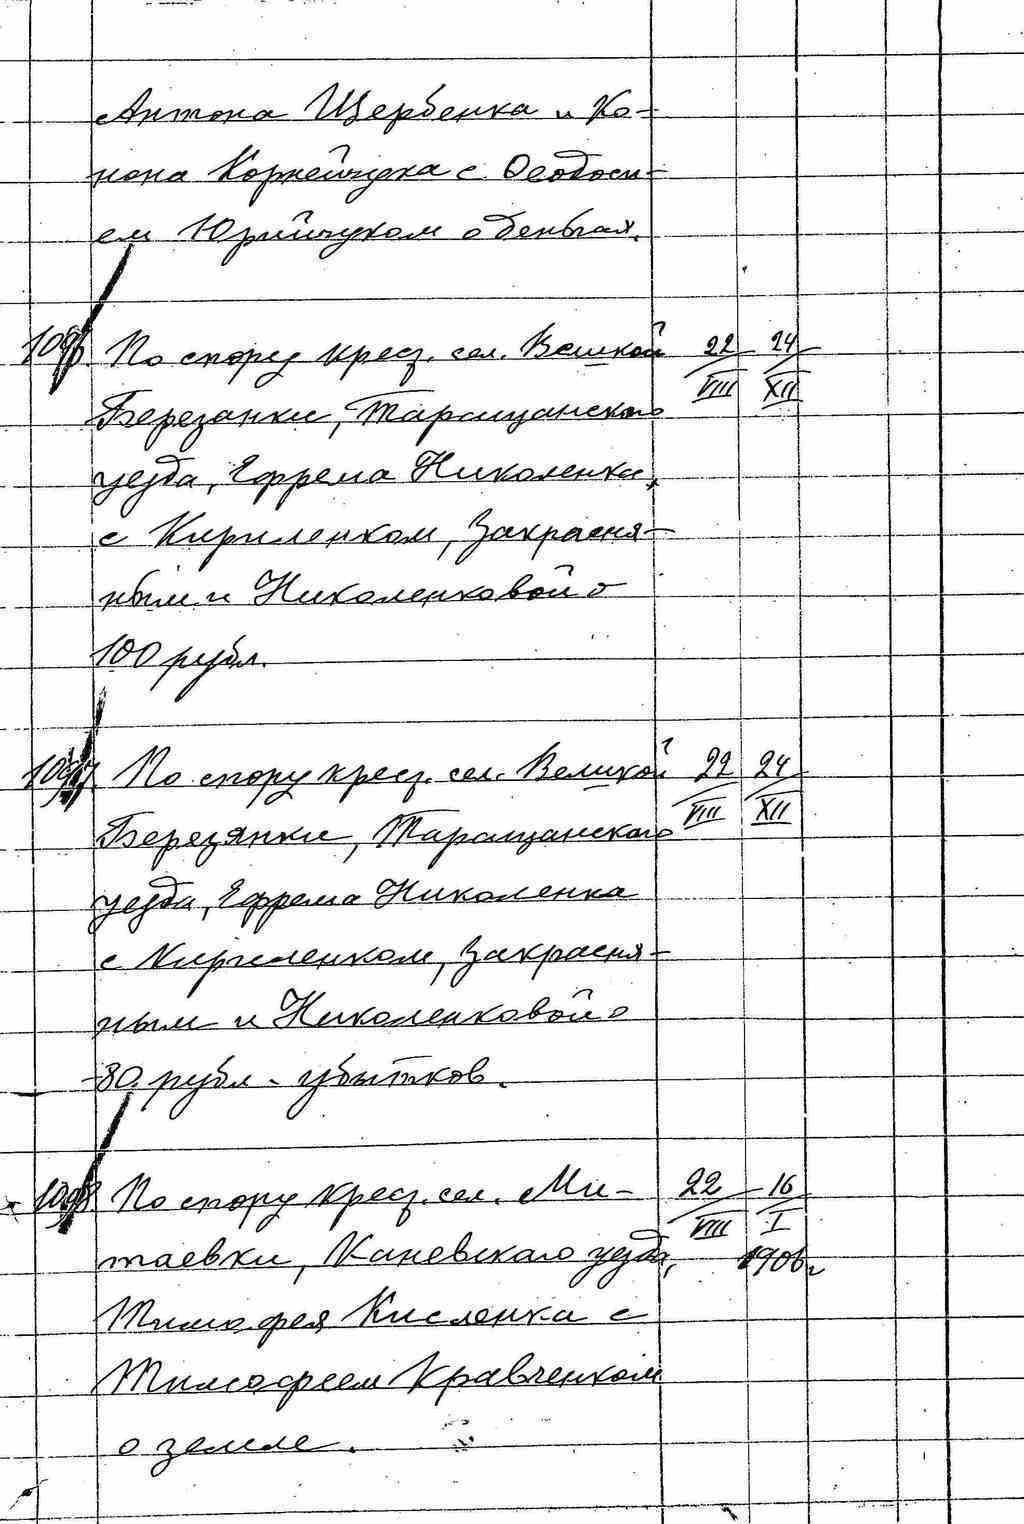 Антона Щербенка и Ко-
нона Корнейчука с Феодоси-
ем Юрийчуком о деньгах.
1096. По спору крест. сел. Великой 22/VIII 24/XII
Березанки, Таращанского
уезда, Ефрема Николенка,
с Кириленком, Закрасня-
ным и Николенковой о
100 рубл.
1097. По спору крест. сел. Великой 22/VIII 24/XII
Березянки, Таращанского
уезда, Ефрема Николенка
с Кириленком, Закрасня-
ным и Николенковой о
80 рубл. убытков.
1098. По спору крест. сел. Ми- 22/VIII 16/I
таевки, Каневского уезда, 1906 г.
Тимофея Кисленка с
Тимофеем Кравченком
о земле.